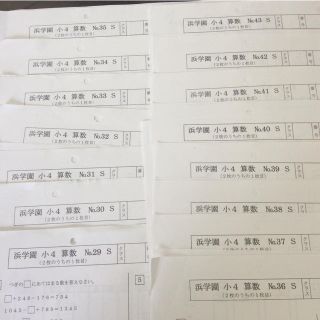 浜学園 小4 算数 №35 S
(2枚のうちの1枚目)
クラス
浜学園 小4 算数 №34 S
(2枚のうちの1枚目)
クラス
浜学園 小4 算数 №33 S
(2枚のうちの1枚目)
クラス
浜学園 小4 算数 №32 S
(2枚のうちの1枚目)
クラス
浜学園 小4 算数 №31 S
(2枚のうちの1枚目)
クラス
浜学園 小4 算数 №30 S
(2枚のうちの1枚目)
クラス
浜学園 小4 算数 №29 S
(2枚のうちの1枚目)
クラス
つぎの□にあてはまる数を答えなさい。
5
□+248-176=784
浜学園 小4 算数 №43 S
(2枚のうちの1枚目)
クラス
浜学園 小4 算数 №42 S
(2枚のうちの1枚目)
クラス
浜学園 小4 算数 №41 S
(2枚のうちの1枚目)
クラス
浜学園 小4 算数 №40 S
(2枚のうちの1枚目)
クラス
浜学園 小4 算数 №39 S
(2枚のうちの1枚目)
クラス
浜学園 小4 算数 №38 S
(2枚のうちの1枚目)
クラス
浜学園 小4 算数 №37 S
(2枚のうちの1枚目)
クラス
浜学園 小4 算数 №36 S
(2枚のうちの1枚目)
クラス